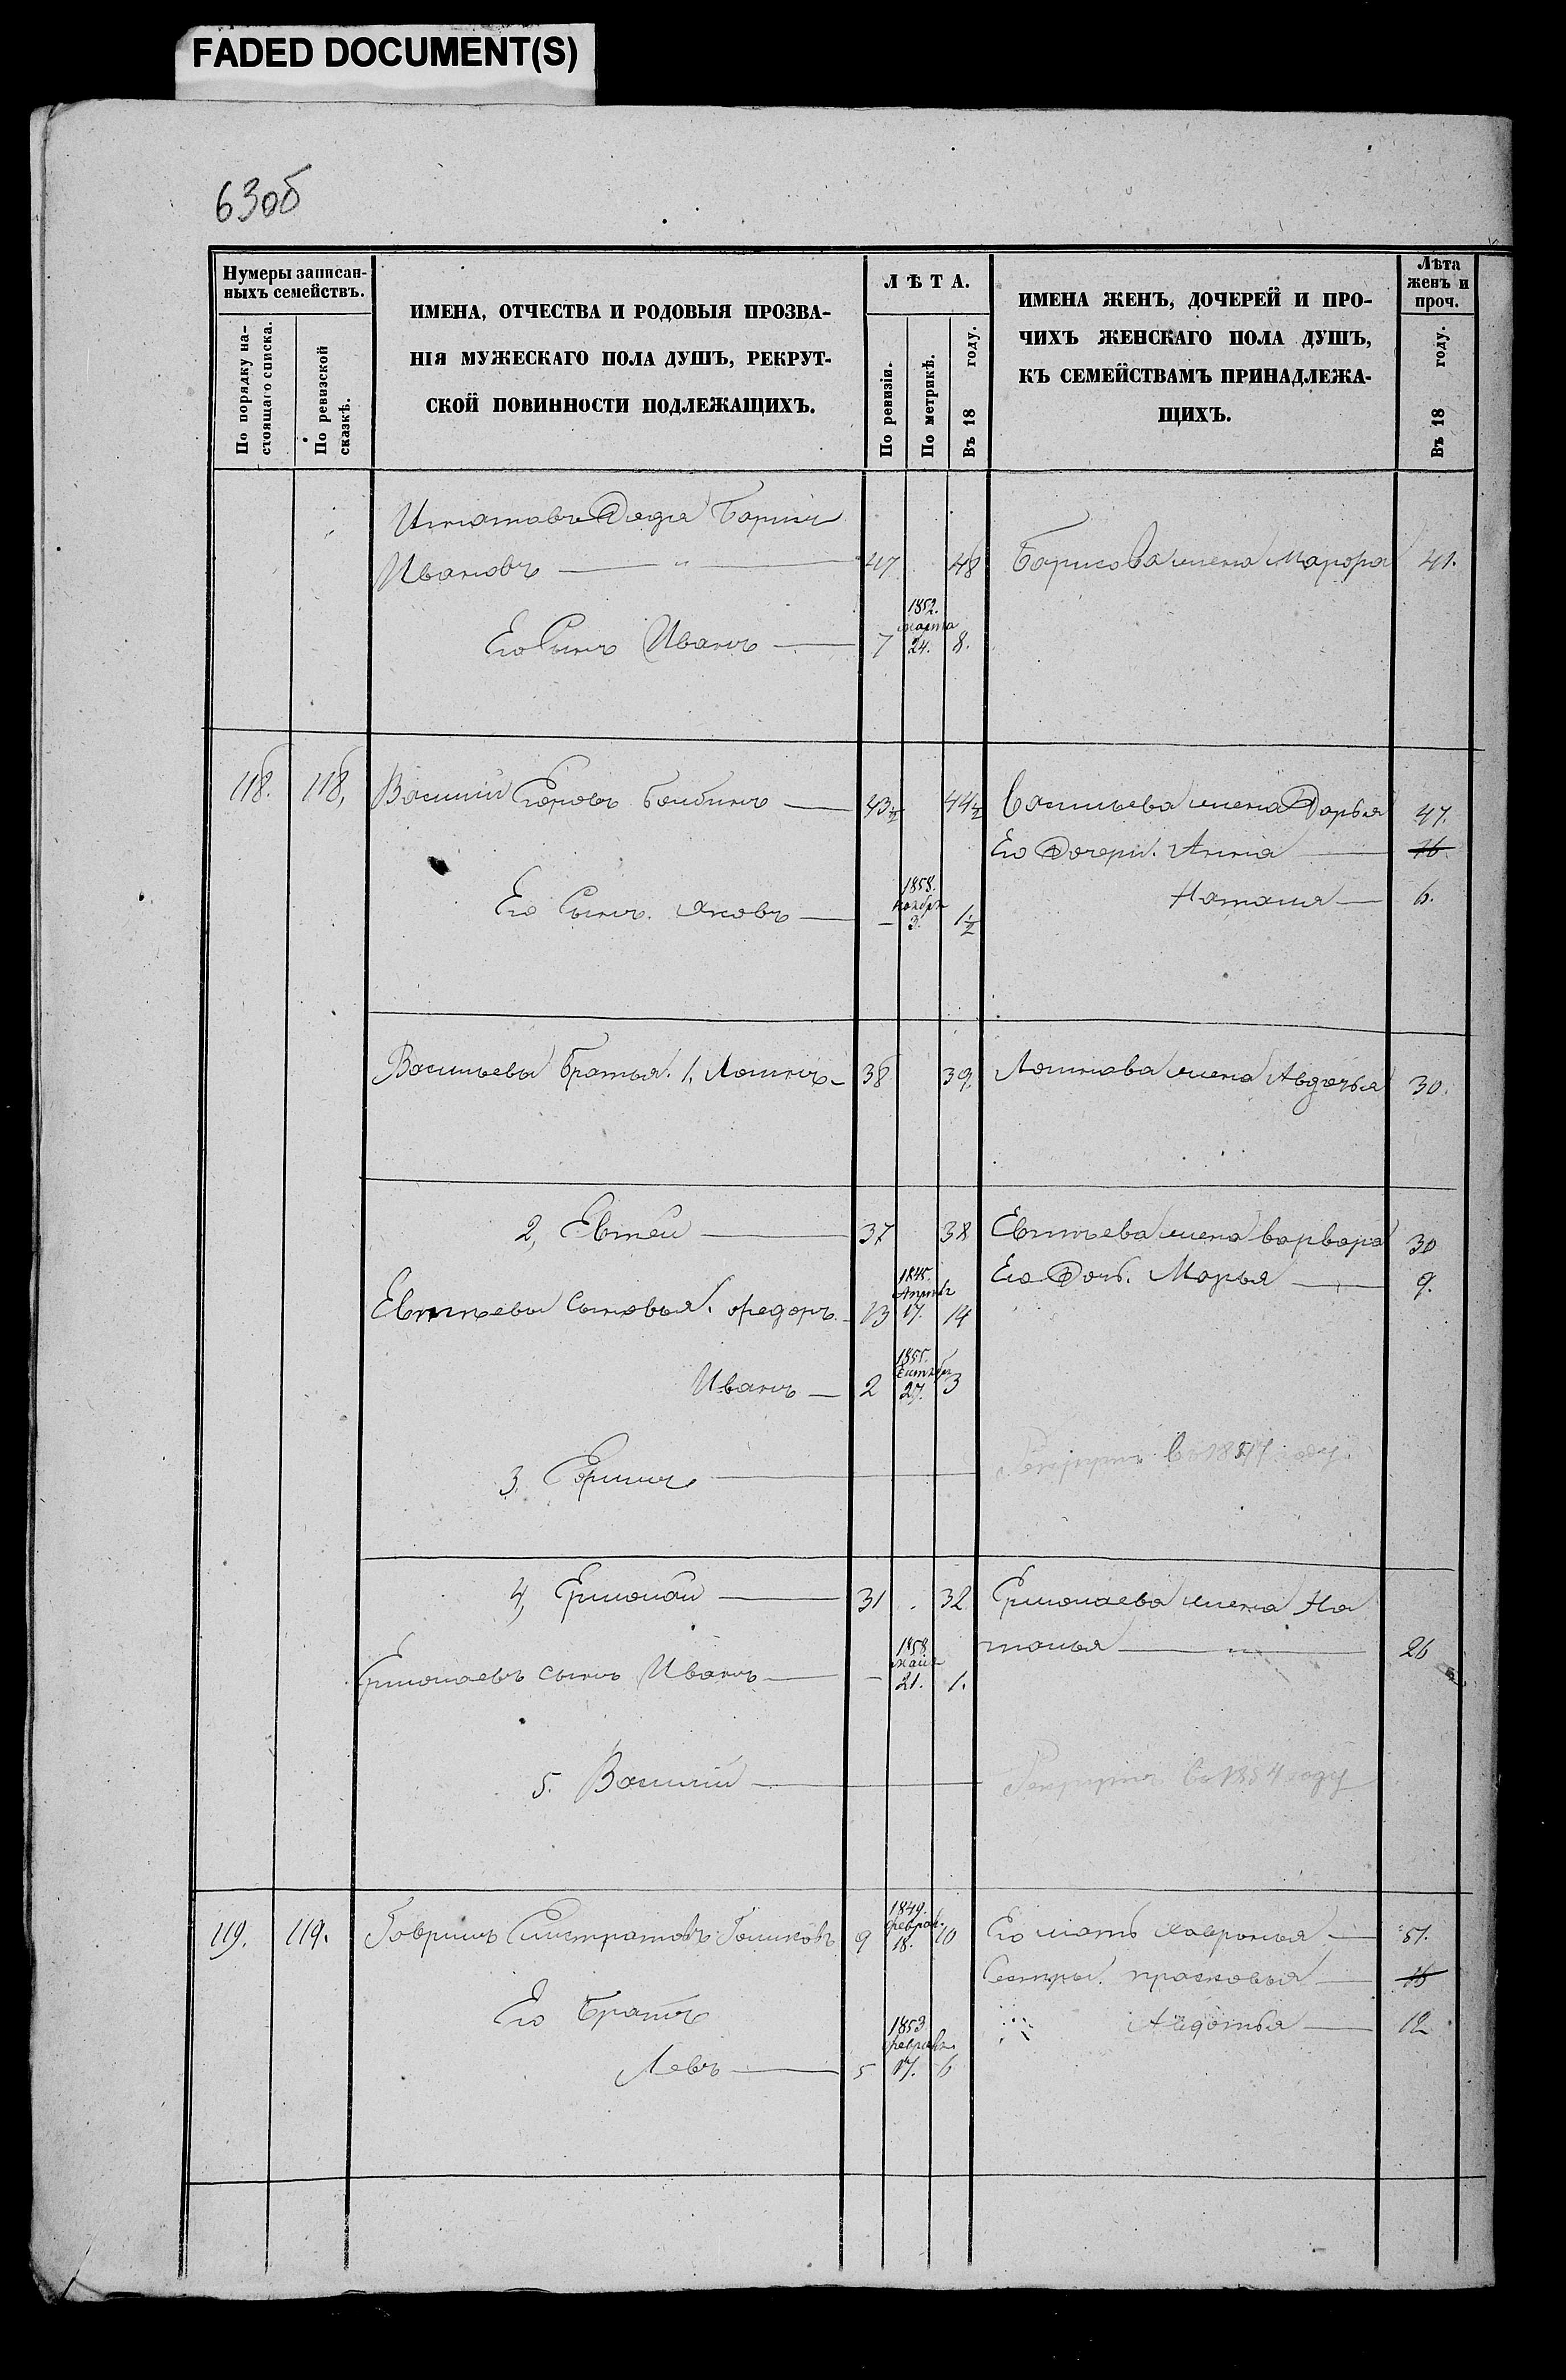 FADED DOCUMENT(S)
63об
Нумеры записан-
ныхъ семействъ.
По порядку на-
стоящаго списка.
По ревизской
сказкѣ.
ИМЕНА, ОТЧЕСТВА И РОДОВЫЯ ПРОЗВА-
НІЯ МУЖЕСКАГО ПОЛА ДУШЪ, РЕКРУТ-
СКОЙ ПОВИННОСТИ ПОДЛЕЖАЩИХЪ.
ЛѢТА.
По ревизіи.
По метрикѣ.
Въ 18 году.
ИМЕНА ЖЕНЪ, ДОЧЕРЕЙ И ПРО-
ЧИХЪ ЖЕНСКАГО ПОЛА ДУШЪ,
КЪ СЕМЕЙСТВАМЪ ПРИНАДЛЕЖА-
ЩИХЪ.
Лѣта
женъ и
проч.
Въ 18 году.
Дядя Борисъ
Ивановъ — " — 47 48 Борисова жена 41.
1852.
марта
Его Сынъ Иванъ — 7 24. 8.
118. 118, Василий — 43½ 44½ Васильева жена Дарья 47.
Его Дочери. Анна — 16
Наталья — 6.
1858.
ноября
Его Сынъ. Яковъ — — 3. 1½
Васильевы братья. 1, Логинъ — 38 39. Логинова жена Авдотья 30.
2, Евтей — 37 38 Евтѣева жена варвара 30
Его Дочь. Марья — 9.
1845.
Апреля
Евтѣевы сыновья. Федоръ — 13 17. 14
1855.
Сентября
Иванъ — 2 27. 3
3, —
Рекрутъ въ 18 году.
4, Ермолай — 31 32 Ермолаева жена На
талья — " — 26
1858
мая
Ермолаевъ сынъ Иванъ — — 21. 1.
5. Василий — Рекрутъ въ 1854 году
1849.
феврал.
119. 119. Гаврилъ Голиковъ 9 18. 10 Его мать Хавронья — 51.
Сестры. прасковья — 16
Авдотья — 12
Его братъ
1853
февраля
Левъ — 5 17. 6